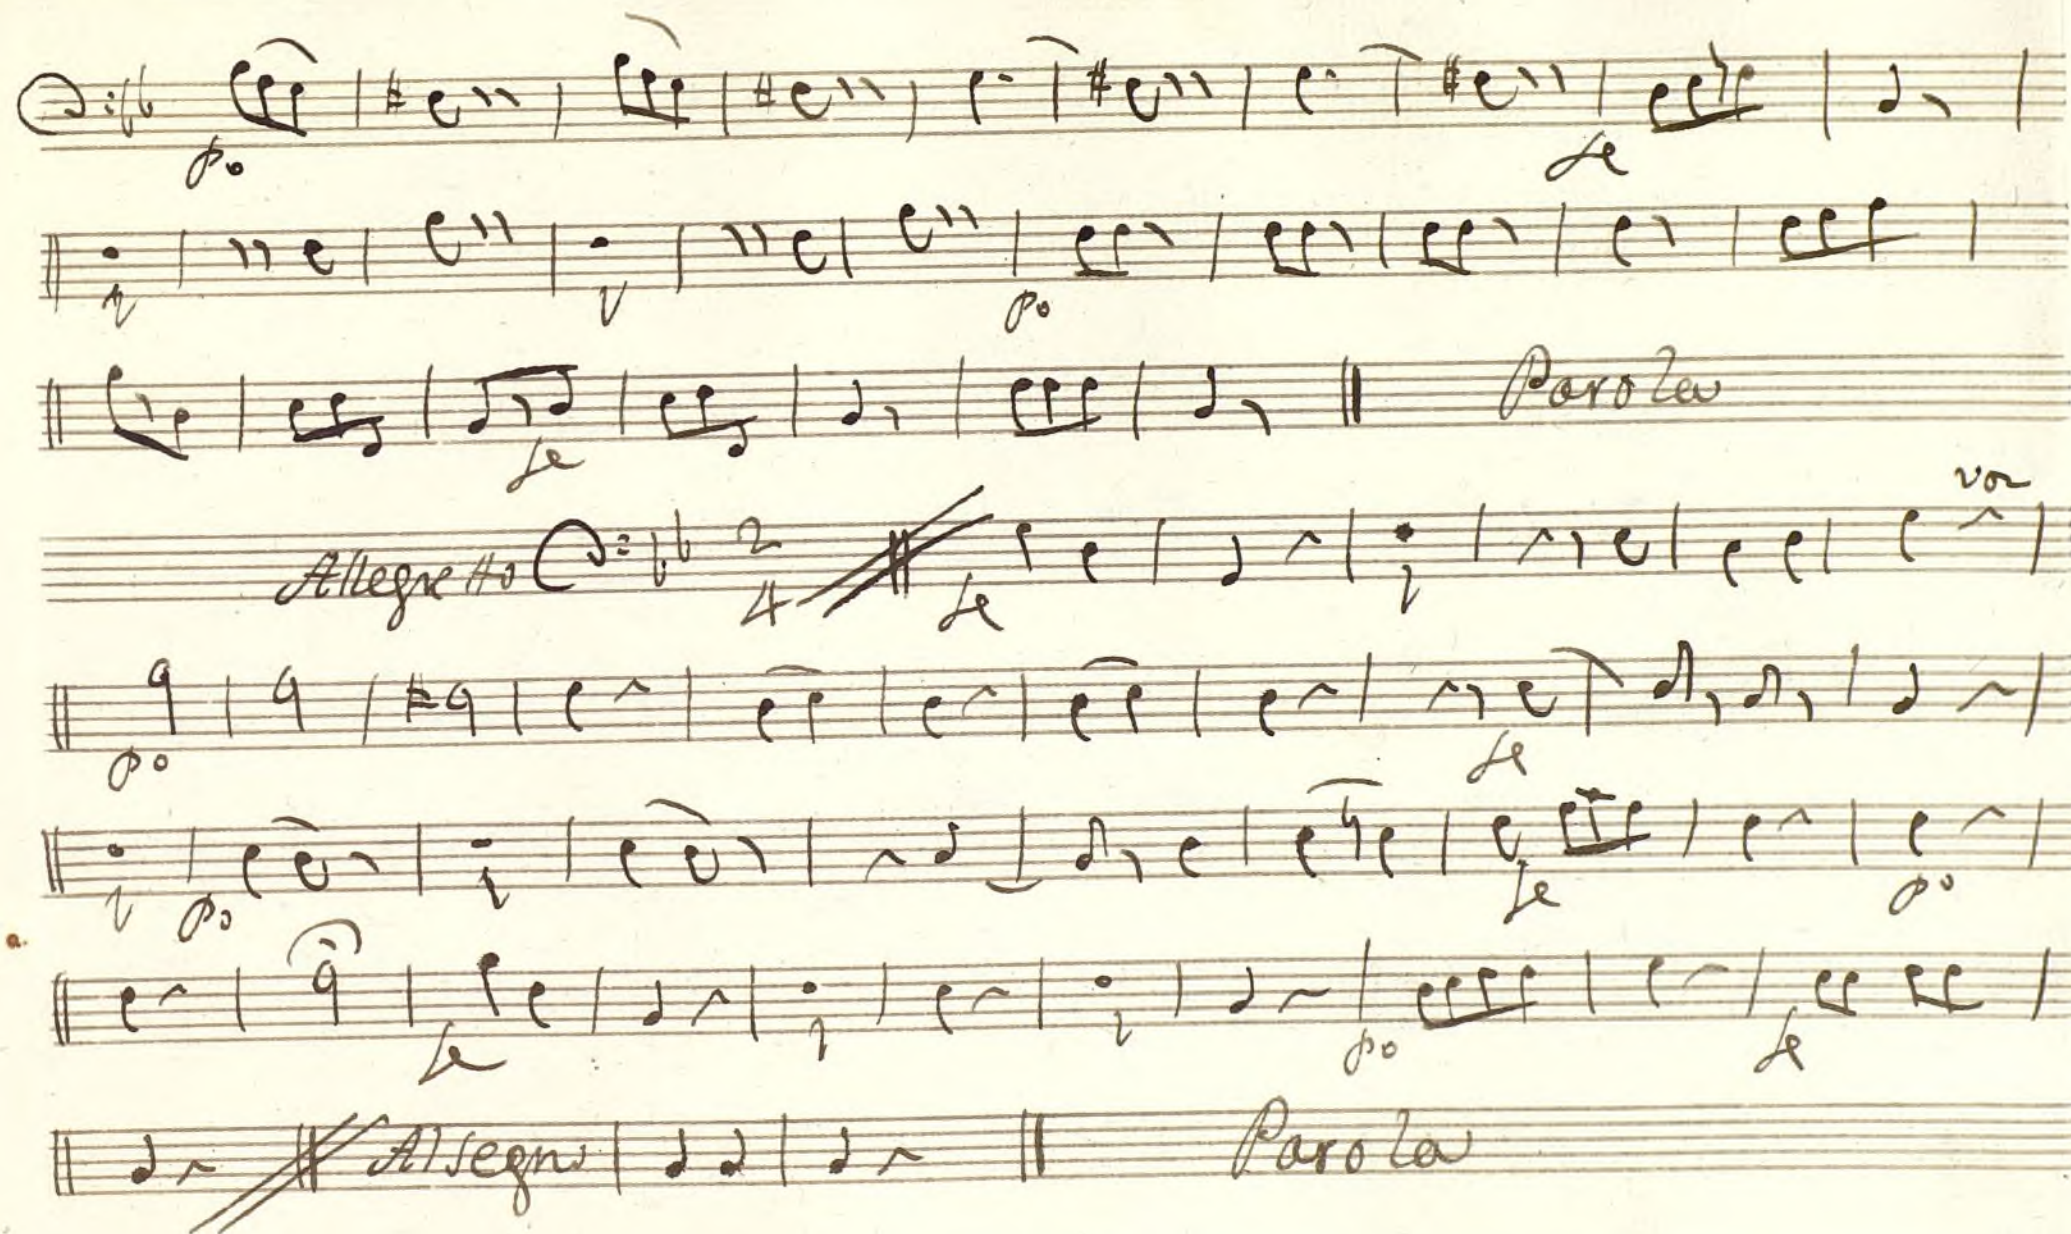 po fe
1 1 po
fe Parola
Allegretto 2 4 fe 1 von
po fe
1 po 1 fe po
fe 1 1 po fe
Al Segno Parola